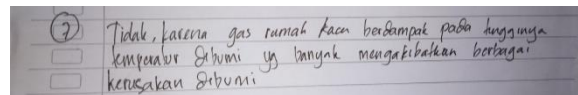 7 Tidak, karena gas rumah kaca berdampak pada tingginya
temperatur dibumi yg banyak mengakibatkan berbagai
kerusakan dibumi